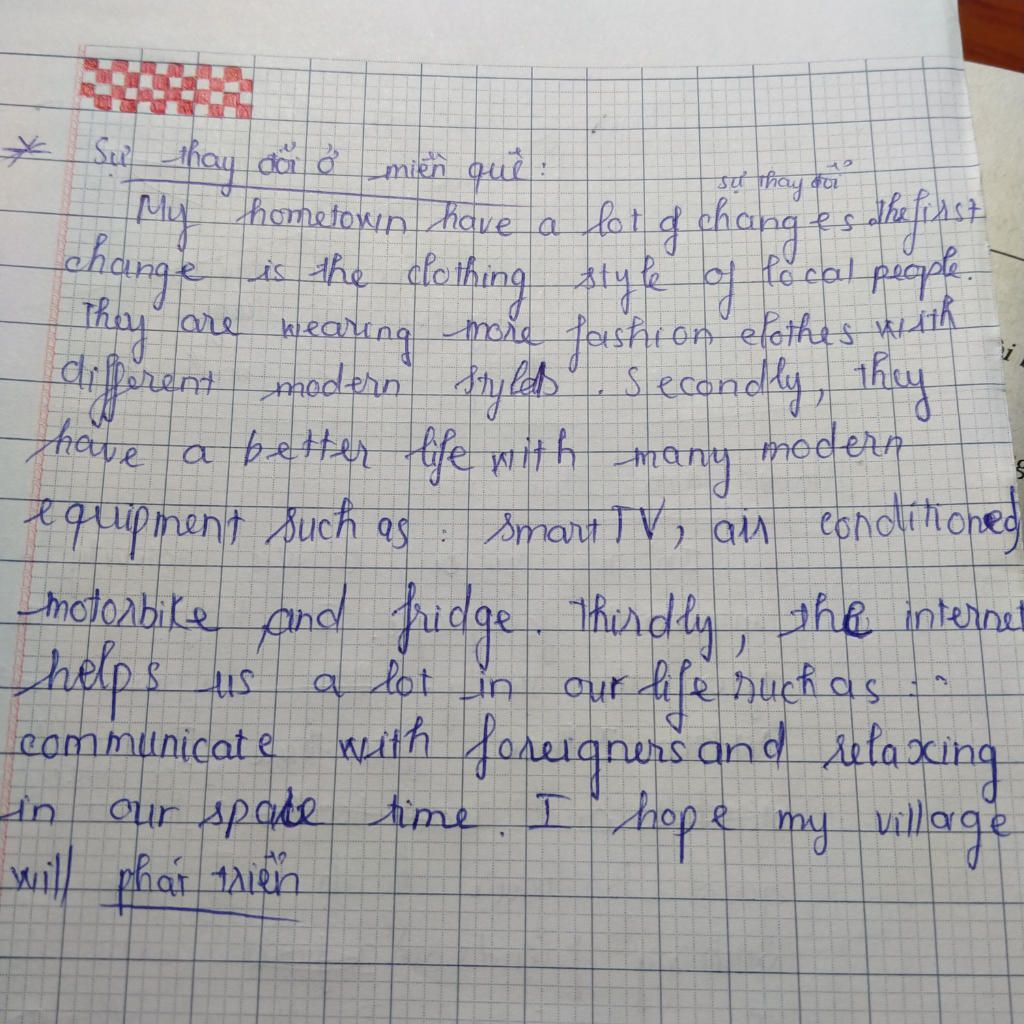 * Sự thay đổi ở miền quê:
sự thay đổi
My hometown have a lot of changes. The first
change is the clothing style of local people.
They are wearing more fashion clothes with
different modern styles. Secondly, they
have a better life with many modern
equipment such as: smart TV, air conditioned
motorbike and fridge. Thirdly, the internet
helps us a lot in our life such as:
communicate with foreigners and relaxing
in our time. I hope my village
will phát triển